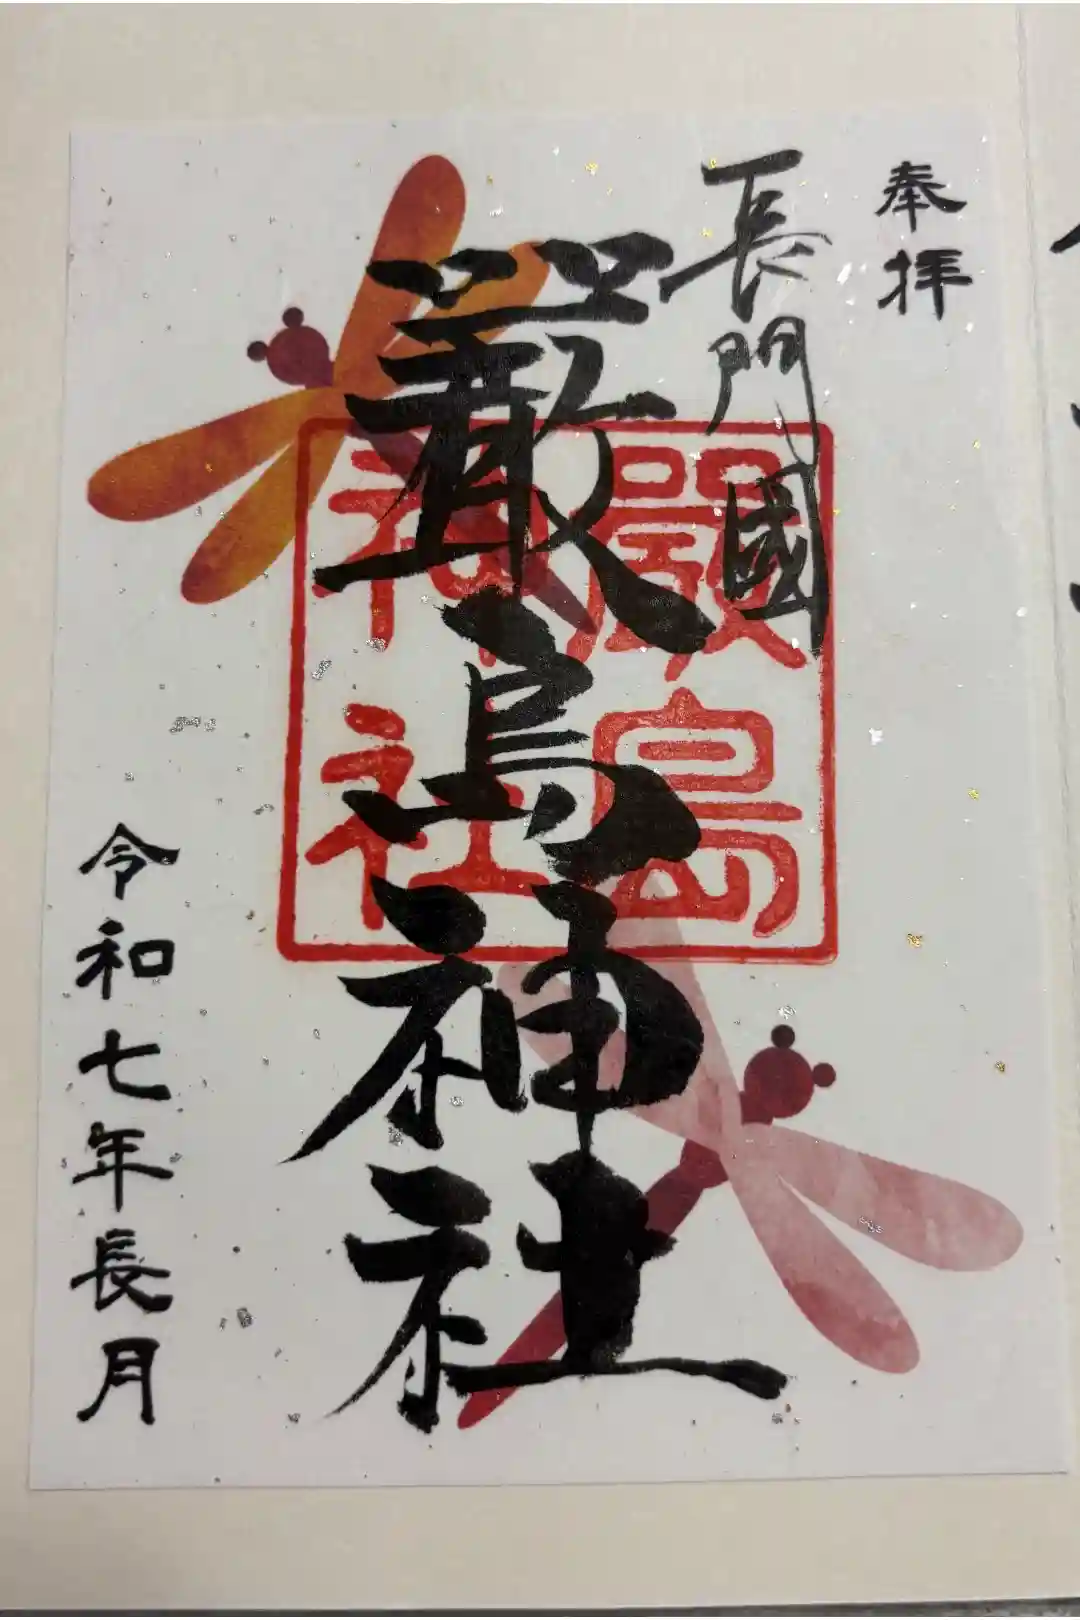 奉拝
長門國
厳島神社
嚴島
神社
令和七年長月